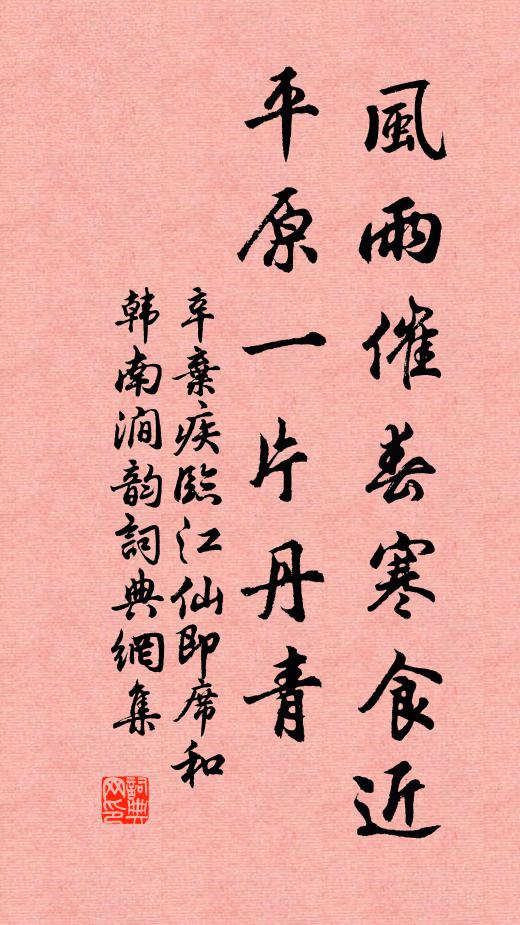 風雨催春寒食近
平原一片丹青
辛棄疾臨江仙即席和
韩南澗韵詞典網集
詞典网印